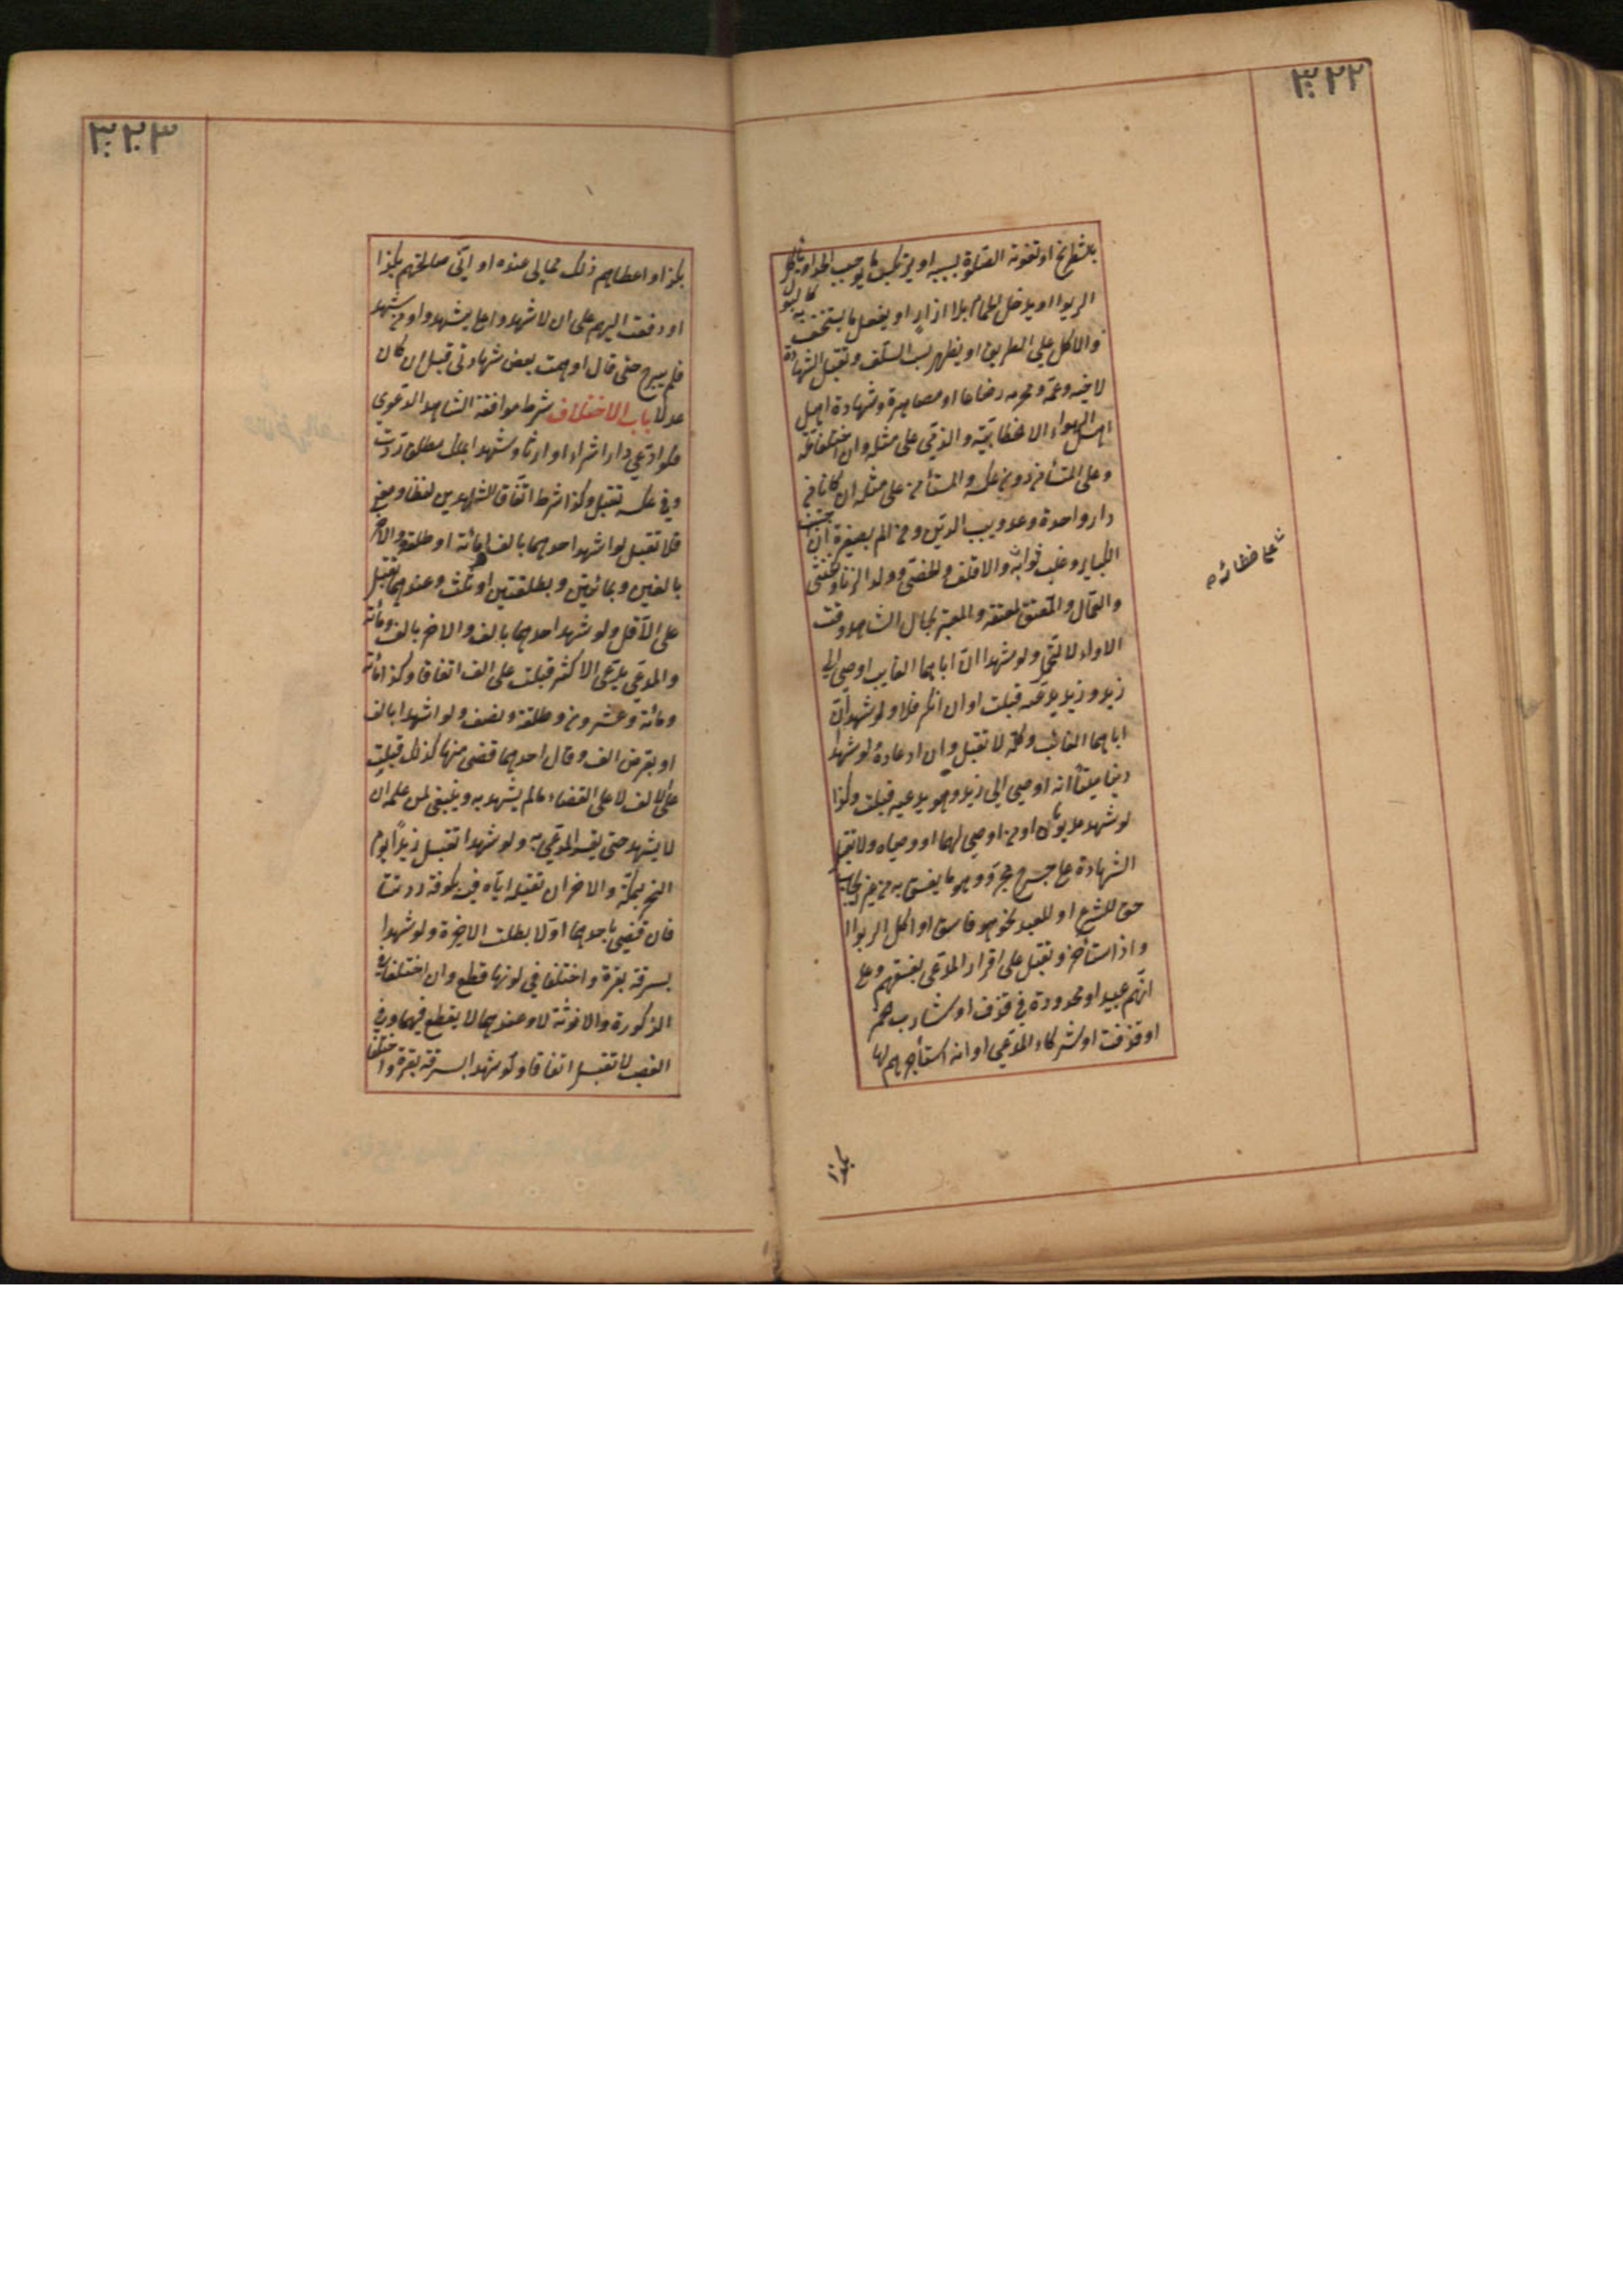 ٣٢٢
بالشطرنج او تفوته الصلوة بسببه او يرتكب ما يوجب الحد او يأكل
الربوا او يدخل الحمام بلا ازار او يفعل ما يستخف به كالبول
والاكل على الطريق او يظهر سب السلف وتقبل الشهادة
لاخيه وعمه ومحرمه رضاعا او مصاهرة وشهادة اهل
اهل الهواء الا الخطابية والذمي على مثله وان اختلفا ملة
وعلى المستأمن دون عكسه والمستأمن على مثله ان كانا من
دار واحدة وعدو بسبب الدين ومن الم بصغيرة ان اجتنب
الكباير وغلب صوابه والاقلف والخصي وولد الزنا والخنثى
والعمال والمعتق لمعتقه والمعتبر حال الشاهد وقت
الاداء لا التحمل ولو شهدا ان اباهما الغايب اوصى الى
زيد وزيد يدعيه قبلت وان انكر فلا ولو شهدا ان
اباهما الغائب وكله لا تقبل وان ادعاه ولو شهد
دينا ميت انه اوصى الى زيد وهو يدعيه قبلت وكذا
لو شهد مديوناه او من اوصى لهما او وصياه ولا تقبل
الشهادة على جرح مجرد وهو ما يفسق به من غير ايجاب
حق للشرع او للعبد نحو هو فاسق او اكل الربوا
واذا استأجر وتقبل على اقرار المدعى بفسقهم وعلى
انهم عبيد او محدودة في قذف او شارب خمر
او قذفة او شركاء المدعي او انه استأجرهم لها
شاع خطائه
بكذا
٣٢٣
بكذا او اعطاهم ذلك مما لي عنده او اني صالحتهم بكذا
او دفعت اليهم على ان لا شهدوا علي يشهدوا ومن شهد
فلم يبرح حتى قال اوهمت بعض شهادتي قبل ان كان
عدلا باب الاختلاف شرط موافقة الشاهد الدعوى
فلو ادعى دارا شراء او ارثا وشهدا بملك مطلق ردت
وفي عكسه تقبل وكذا شرط اتفاق الشاهدين لفظا ومعنى
فلا تقبل لو اشهد احدهما بالف او مائة او طلقة والاخر
بالفين وبمائتين وبطلقتين او ثلث وعندهما تقبل
على الاقل ولو شهد احدهما بالف والاخر بالف ومائة
والمدعي يدعى الاكثر قبلت على الف اتفاقا وكذا مائة
ومائة وعشرون وطلقة ونصف ولو اشهدا بالف
او بقرض الف وقال احدهما قضى منها كذلك قبلت
على الالف لا على القضاء مالم يشهد به وينبغي لمن علم ان
لا يشهد حتى يقر المدعي به ولو شهدا بقتل زيدا يوم
النحر بمكة والاخران بقتله اياه فيه بكوفة ردتا
فان قضي باحدهما اولا بطلت الاخرة ولو شهدا
بسرقة بقرة واختلفا في لونها قطع وان اختلفا في
الذكورة والانوثة لا وعندهما لا يقطع فيهما وفي
الغصب لا تقبل اتفاقا ولو شهدا بسرقة بقرة واختلفا